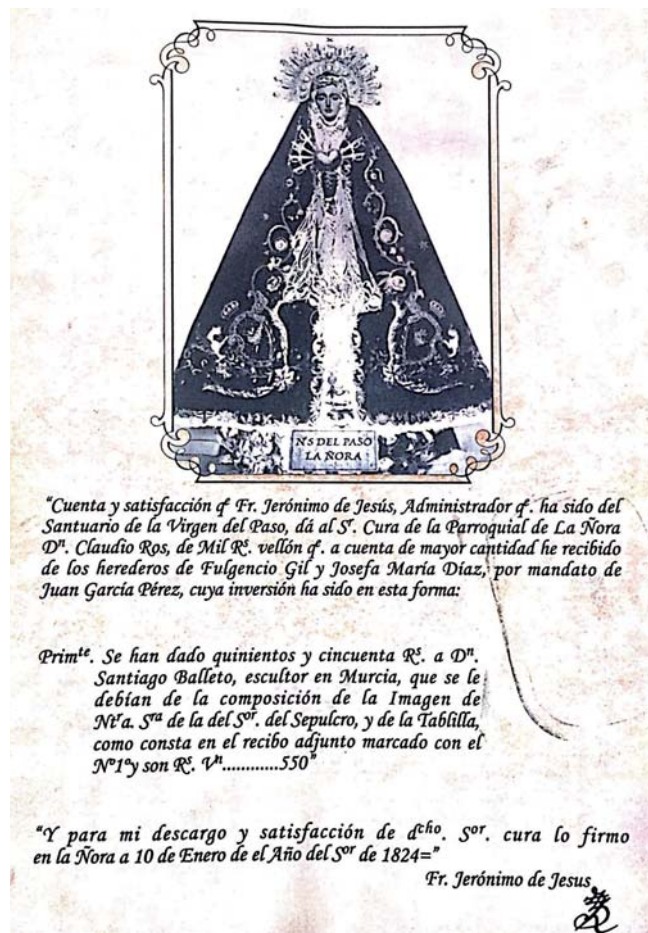 Nº S DEL PASO
LA ÑORA
“Cuenta y satisfacción qe Fr. Jerónimo de Jesús, Administrador qe. ha sido del
Santuario de la Virgen del Paso, dá al Sr. Cura de la Parroquial de La Ñora
Dn. Claudio Ros, de Mil Rs. vellón qe. a cuenta de mayor cantidad he recibido
de los herederos de Fulgencio Gil y Josefa María Díaz, por mandato de
Juan García Pérez, cuya inversión ha sido en esta forma:
Primte. Se han dado quinientos y cincuenta Rs. a Dn.
Santiago Balleto, escultor en Murcia, que se le
debían de la composición de la Imagen de
Ntra. Sra de la del Sor. del Sepulcro, y de la Tablilla,
como consta en el recibo adjunto marcado con el
Nº1ºy son Rs. Vn............550”
“Y para mi descargo y satisfacción de dcho. Sor. cura lo firmo
en la Ñora a 10 de Enero de el Año del Sor de 1824=”
Fr. Jerónimo de Jesus